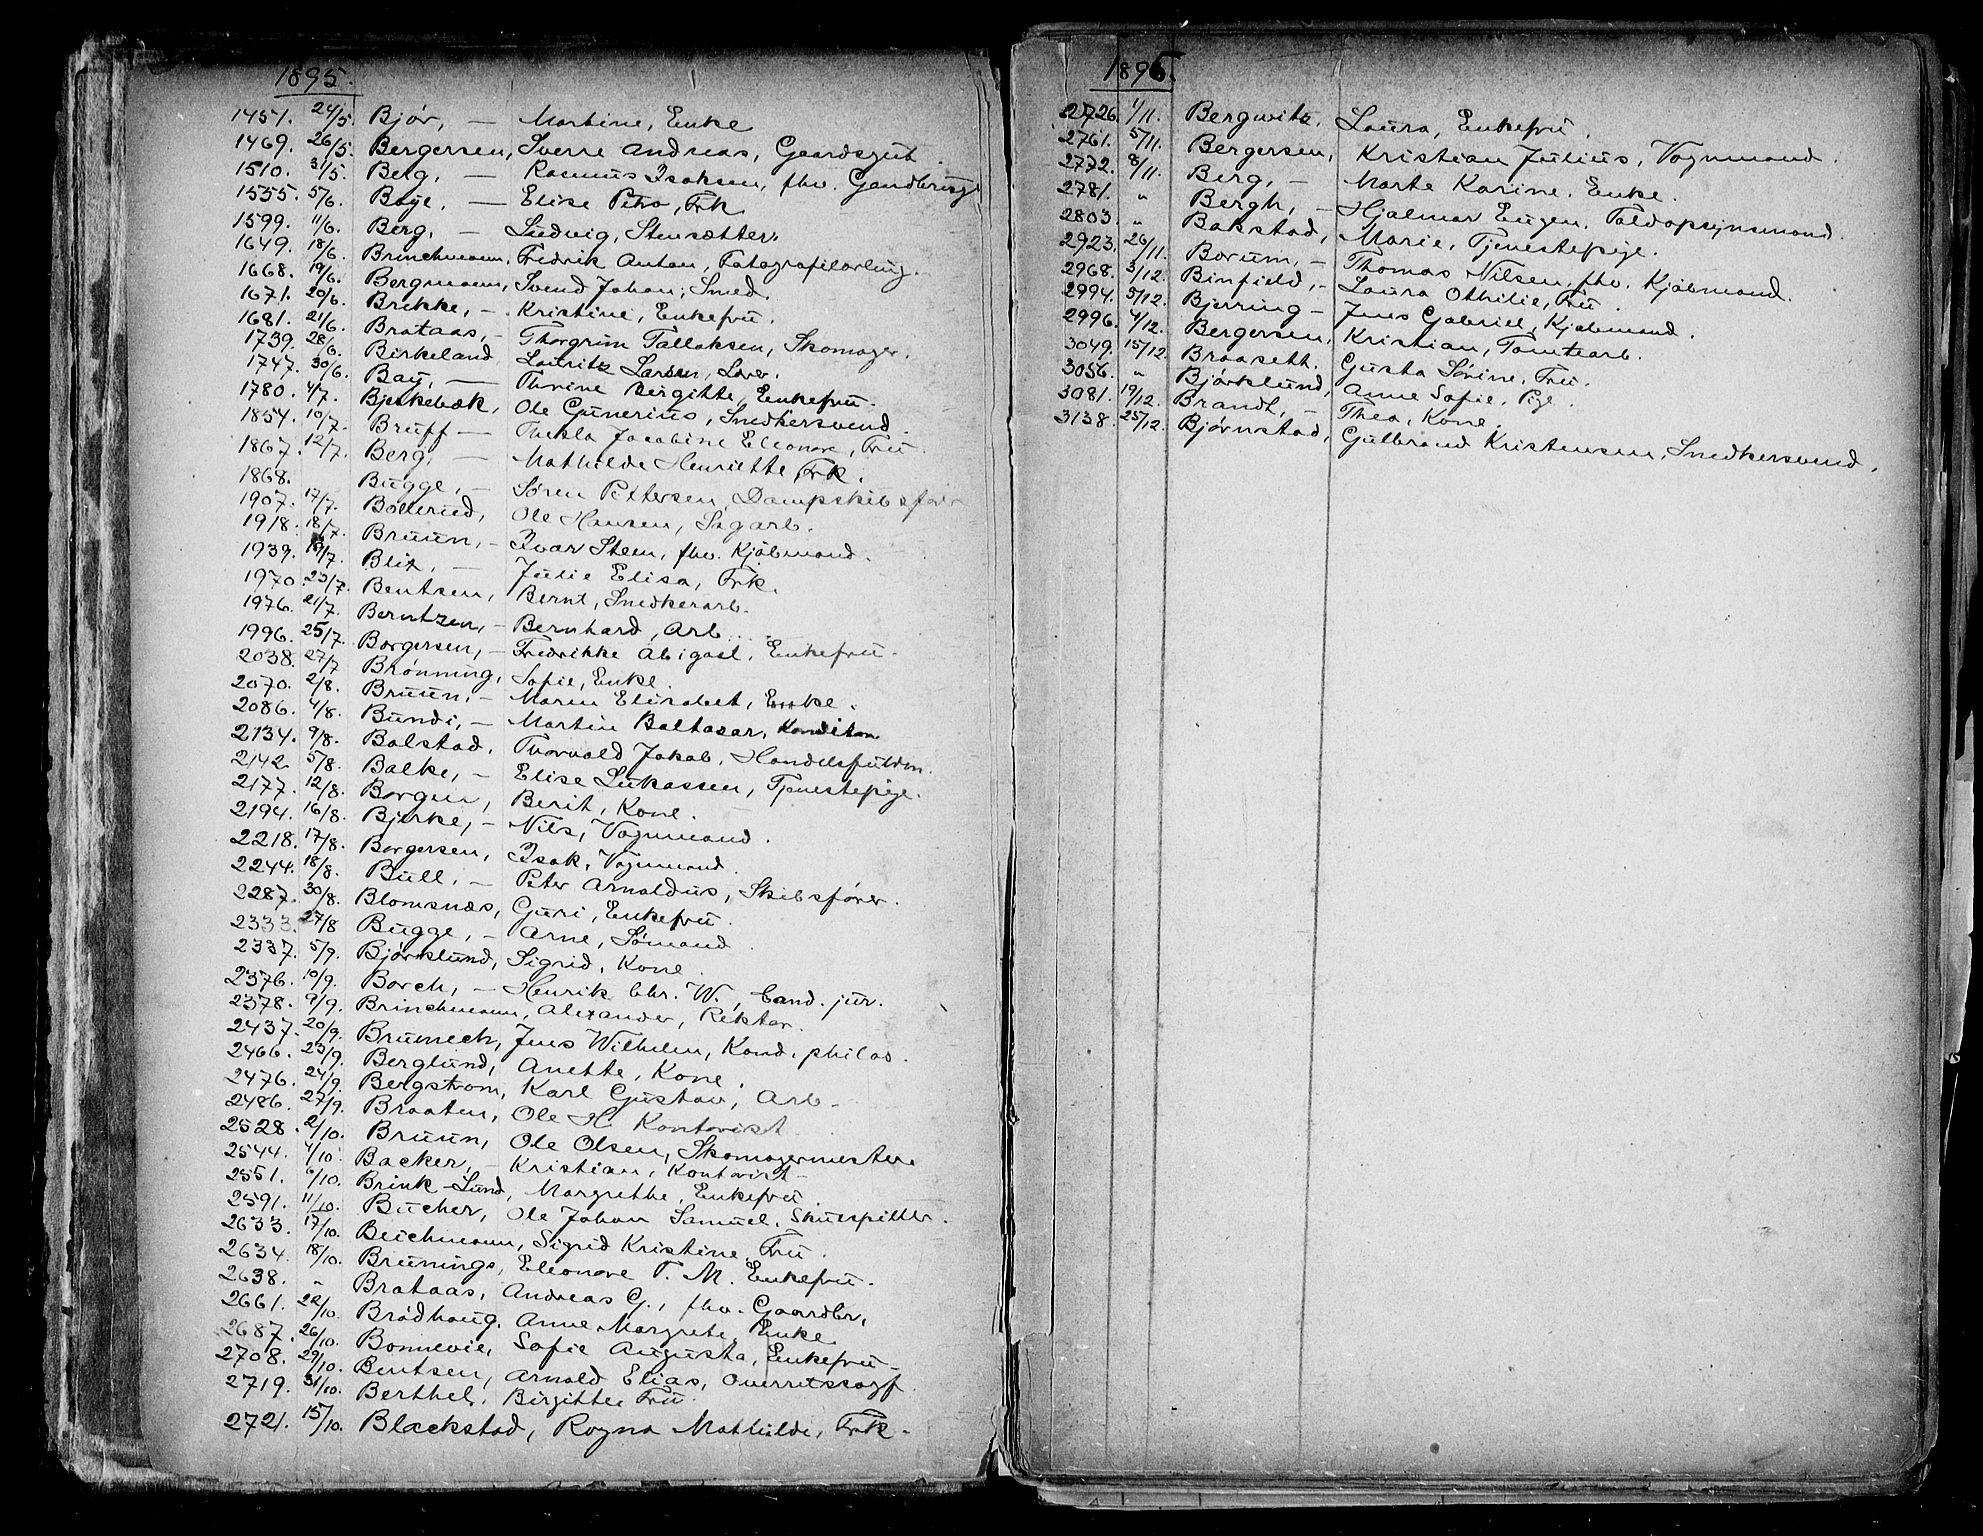 1895.
1457. 24/5. Bjør, — Martine, Enke
1469. 26/5. Bergersen, Sverre Andreas, Gaardsgut.
1510. 31/5. Berg, — Rasmus Isaksen, fhv.
1555. 5/6. Boye, — Elise Petra, Frk.
1599. 11/6. Berg, — Ludvig, Stensætter.
1649. 18/6. Brinchmann, Fredrik Anton, Fotografilærling.
1668. 19/6. Bergmann, Svend Johan, Smed.
1671. 20/6. Brekke, — Kristine, Enkefru.
1681. 21/6. Brataas, — Thorgrim Tallaksen, Skomager.
1739. 28/6. Birkeland Lauritz Larsen,
1747. 30/6. Bay, — Thrine Birgitte, Enkefru.
1780. 4/7. Bjerkebæk, Ole Gunerius, Snedkersvend.
1854. 10/7. Bruff — Thekla Jacobine Eleonore, Fru.
1867. 12/7. Berg, — Mathilde Henriette, Frk.
1868. Bugge, — Søren Pettersen, Dampskibsfører
1907. 17/7. Bølerud, Ole Hansen, Sagarb.
1918. 18/7. Bruun, — Ivar Steen, fhv. Kjøbmand.
1939. 19/7. Blix, — Julie Elisa, Frk.
1970. 23/7. Bentsen, Bernt, Snedkerarb.
1976. 21/7. Berntzen, — Bernhard, Arb.
1996. 25/7. Borgersen, — Fredrikke Abigael, Enkefru.
2038. 27/7 Brønning, Sofie, Enke.
2070. 2/8. Bruun, — Maren Elisabet, Enke.
2086. 4/8. Bundi, — Martin Baltasar, Konditor
2134. 9/8. Bolstad, Thorvald Jakob, Handelsfuldm.
2142. 5/8. Balke, — Elise Lukassen, Tjenestepige.
2177. 12/8. Borgen, Berit, Kone.
2194. 16/8. Bjerke, — Nils, Vognmand.
2218. 17/8. Borgersen, Isak, Vognmand.
2244. 18/8. Bull, — Peter Arnoldus, Skibsfører.
2287. 30/8. Blomsnæs, Guri, Enkefru.
2333. 27/8 Bugge, — Arne, Sømand
2337. 5/9. Bjørklund, Sigrid, Kone.
2376. 10/9. Borch, — Henrik Chr. W., Cand. jur.
2378. 9/9. Brinchmann, Alexander, Rektor.
2437. 20/9. Brunech, Jens Wilhelm, Kand. philos.
2466. 23/9. Berglund, Anette, Kone.
2476. 24/9. Bergstrøm, Karl Gustav, Arb.
2486. 27/9. Braaten, Ole H. Kontorist
2528. 2/10. Bruun, Ole Olsen, Skomagermester.
2544. 4/10. Backer, — Kristian, Kontorist
2551. 6/10. Brink-Lund, Margrethe, Enkefru.
2591. 11/10. Bucher, Ole Johan Samuel, Skuespiller.
2633. 17/10. Beichmann, Sigrid Kristine, Fru.
2634. 18/10. Brunings, Eleonore T. M. Enkefru.
2638. " Brataas, Andreas G., fhv. Gaardbr.
2661. 22/10. Brødhaug, Anne Margrete, Enke
2687. 26/10. Bonnevie, Sofie Augusta, Enkefru.
2708. 29/10. Bentsen, Arnold Elias, Overretssagf.
2719. 31/10. Berthel, Birgitte Fru.
2721. 15/10. Blackstad, Ragna Mathilde, Frk.
1895.
2726. 1/11. Bergwitz, Laura, Enkefru.
2761. 5/11. Bergersen, Kristian Julius, Vognmand.
2772. 8/11. Berg, — Marte Karine, Enke.
2781. " Bergh, — Hjalmar Eugen, Toldopsynsmand.
2803. " Bakstad, Marie, Tjenestepige.
2923. 26/11. Borum, — Thomas Nilsen, fhv. Kjøbmand.
2968. 3/12. Binfield, — Laura Othilie, Fru.
2994. 5/12. Bjerring — Jens Gabriel, Kjøbmand.
2996. 4/12. Bergersen, Kristian, Tomtearb.
3049. 15/12. Braaseth. Gusta Sørine, Fru.
3056. " Bjørklund, Anne Sofie, Pge.
3081. 19/12. Brandt, — Thea, Kone.
3138. 25/12. Bjørnstad, Gulbrand Kristensen, Snedkersvend.